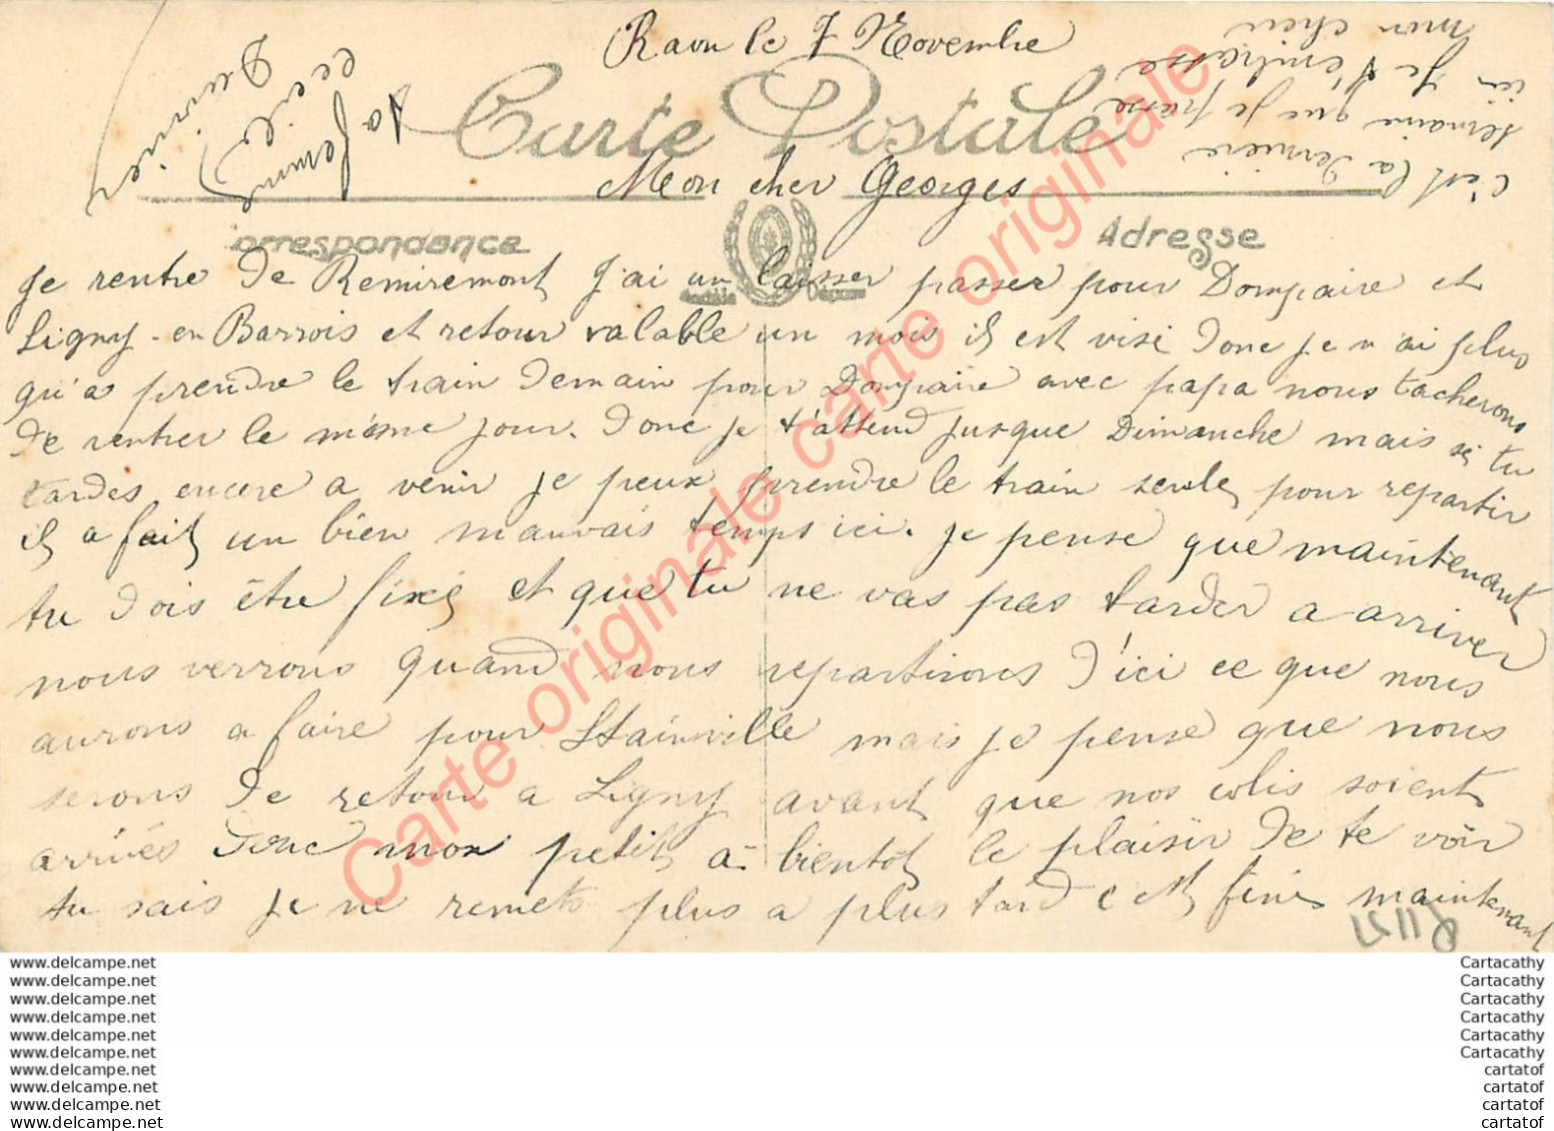 Raon le 7 Novembre
Carte Postale
Mon cher Georges
Correspondance
Adresse
Modèle
Déposé
Je rentre de Remiremont J'ai un laisser passer pour Dompaire et
Ligny-en Barrois et retour valable un mois il est visé donc je n'ai plus
qu'a prendre le train demain pour Dompaire avec papa nous tacherons
de rentrer le même jour. donc je t'attend jusque Dimanche mais si tu
tardes encore a venir je peux prendre le train seule pour repartir
il a fait un bien mauvais temps ici. je pense que maintenant
tu dois être fixé et que tu ne vas pas tarder a arriver
nous verrons quand nous repartirons d'ici ce que nous
aurons a faire pour Stainville mais je pense que nous
serons de retour a Ligny avant que nos colis soient
arrivés donc mon petit à bientot le plaisir de te voir
tu sais je ne remets plus a plus tard c'est fini maintenant
c'est la dernière
semaine que je passe
ici Je t'embrasse
mon cheri
ta femme
Cecile
Carte originale carte originale carte originale
www.delcampe.net
www.delcampe.net
www.delcampe.net
www.delcampe.net
www.delcampe.net
www.delcampe.net
www.delcampe.net
www.delcampe.net
www.delcampe.net
www.delcampe.net
Cartacathy
Cartacathy
Cartacathy
Cartacathy
Cartacathy
Cartacathy
cartatof
cartatof
cartatof
cartatof